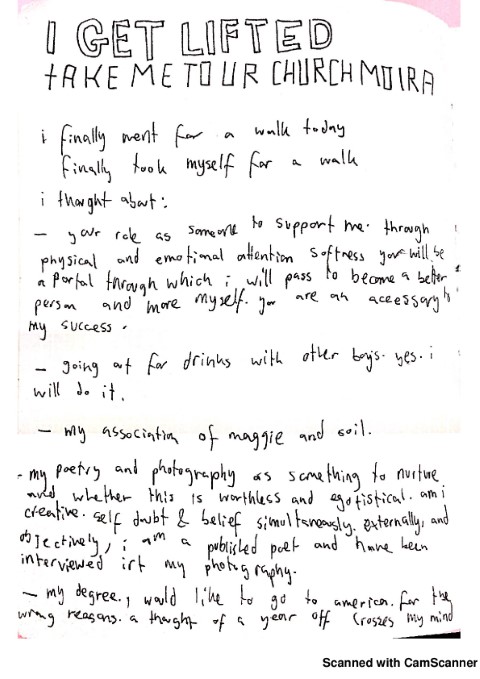 I GET LIFTED
tAKE ME TO UR CHURCH MOIRA
i finally went for a walk today
finally took myself for a walk
i thought about:
– your role as someone to support me. through
physical and emotional attention softness you will be
a portal through which i will pass to become a better
person and more myself. you are an accessory to
my success.
– going out for drinks with other boys. yes. i
will do it.
– my association of maggie and soil.
- my poetry and photography as something to nurture
and whether this is worthless and egotistical. am i
creative. self doubt & belief simultaneously. externally, and
objectively, i am a published poet and have been
interviewed irt my photography.
– my degree. i would like to go to america. for the
wrong reasons. a thought of a year off crosses my mind
Scanned with CamScanner